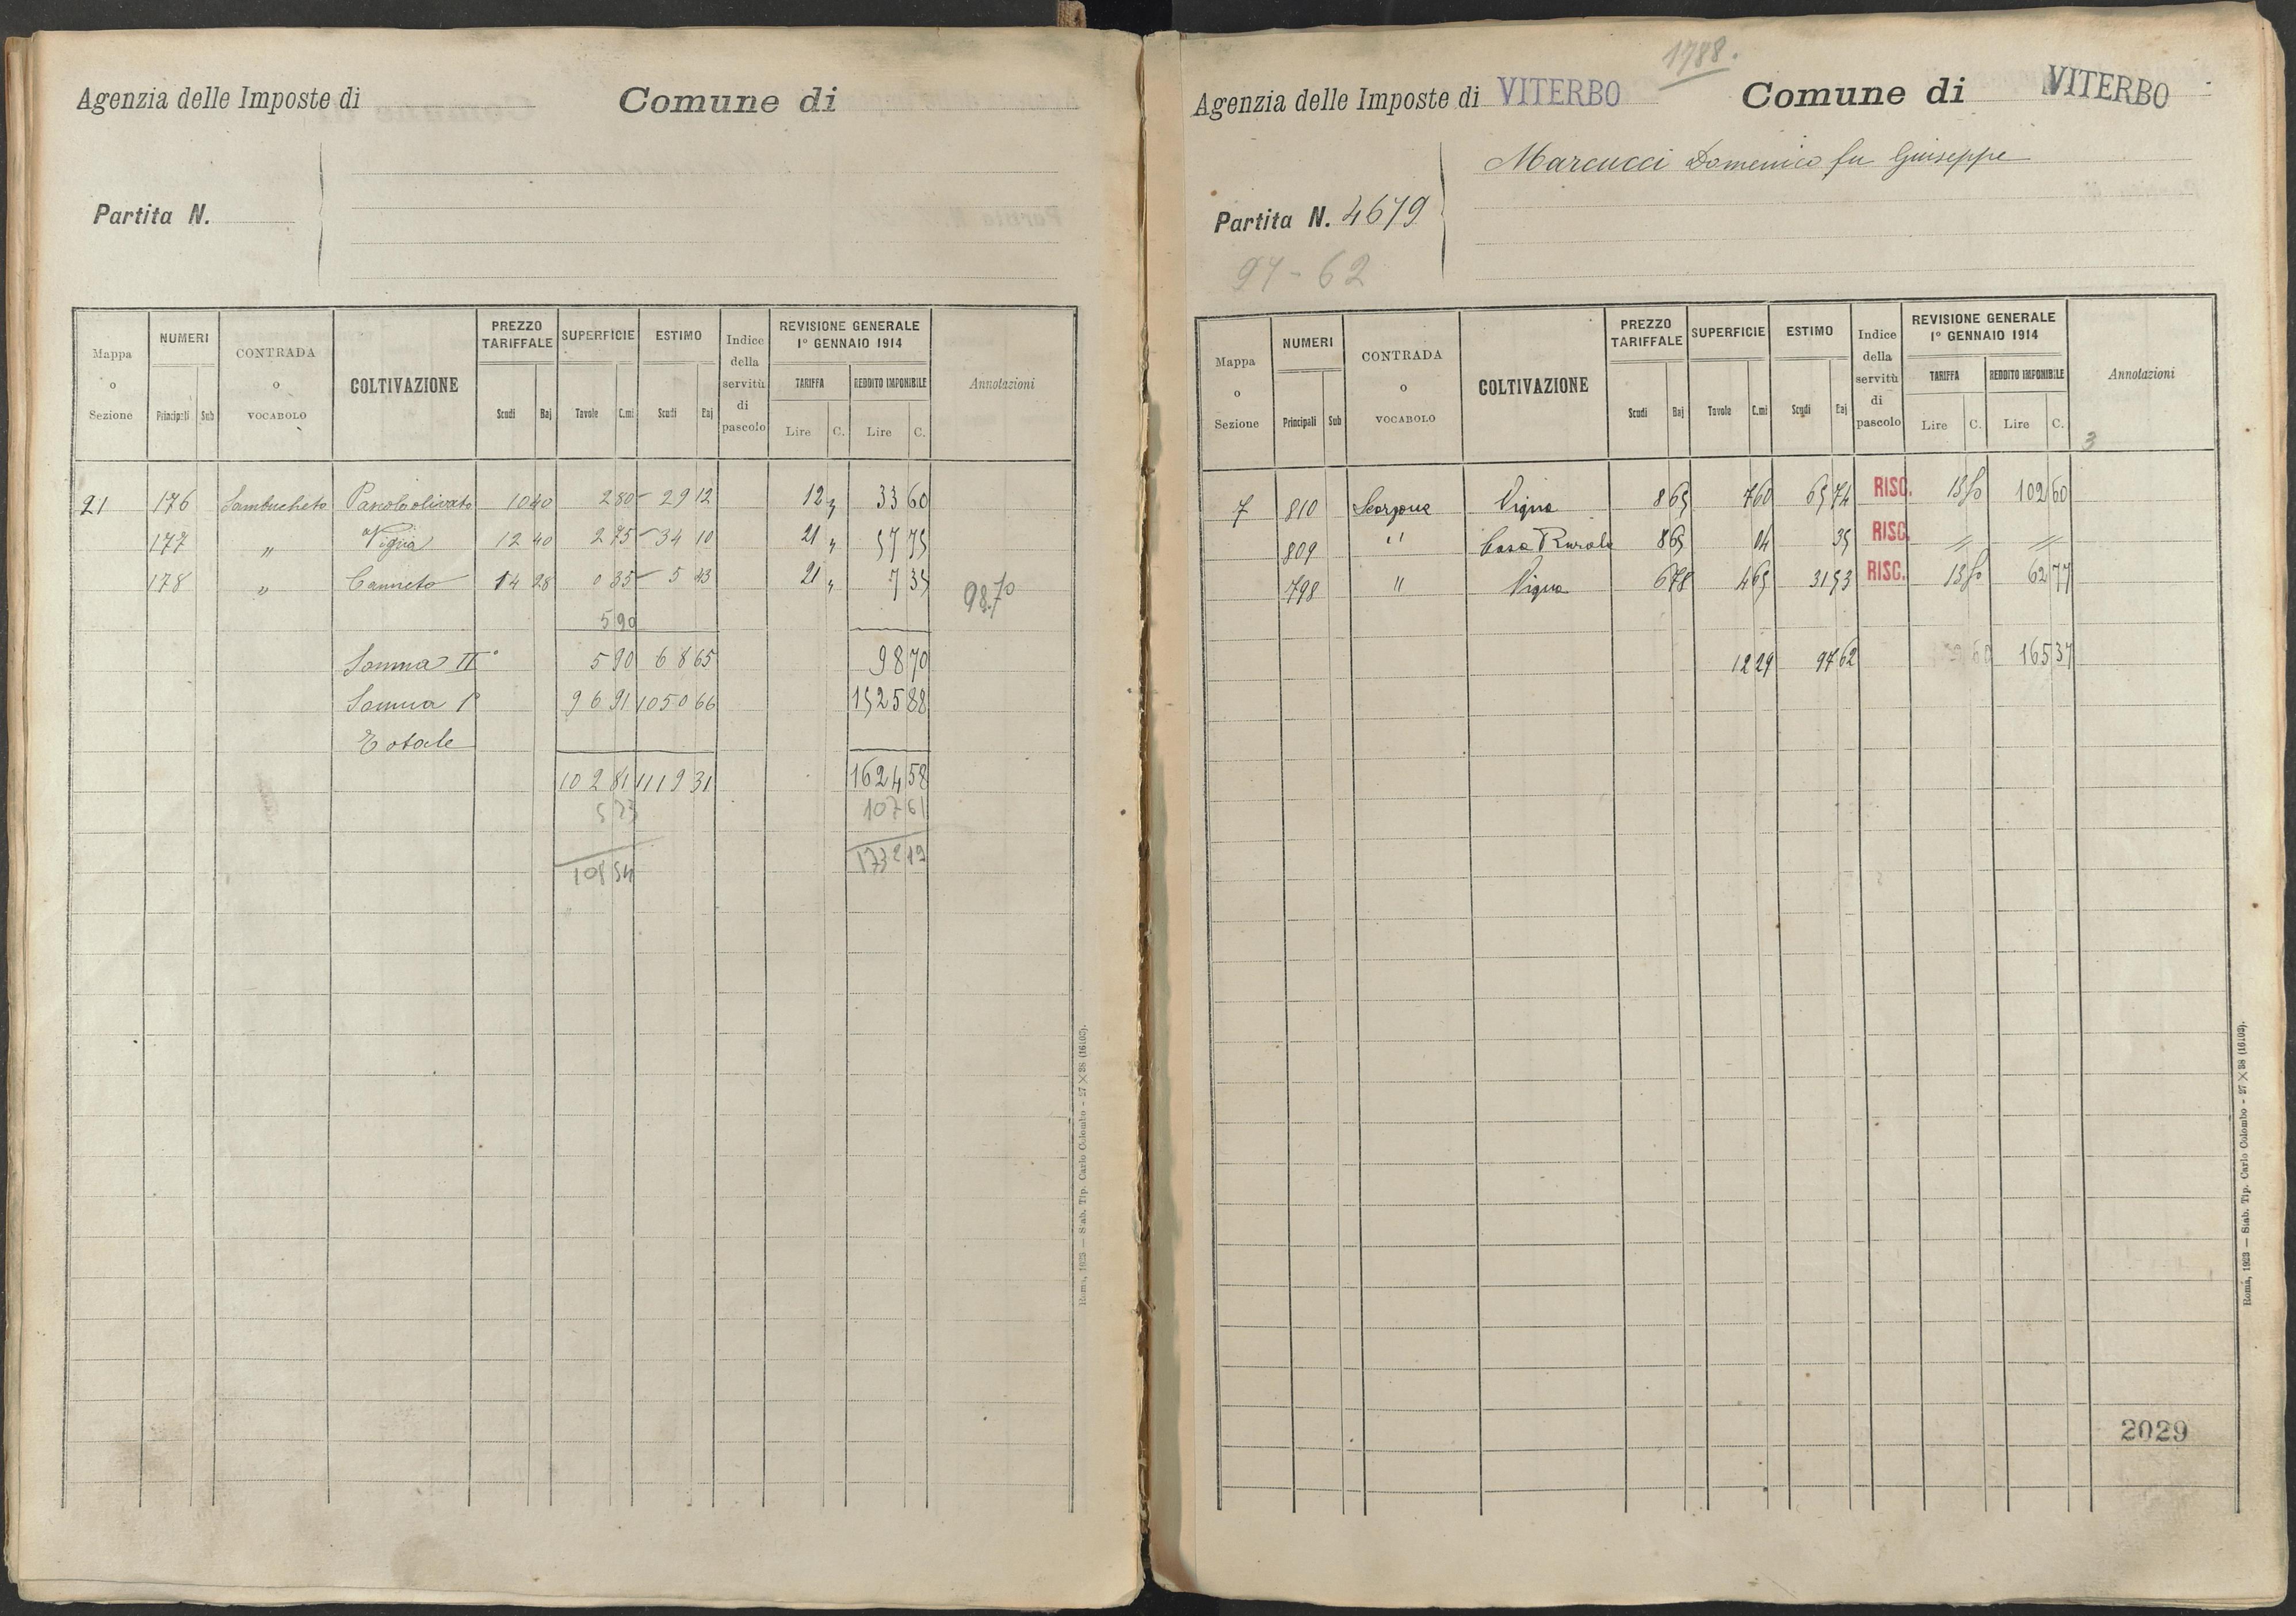 Agenzia delle Imposte di
Comune di
Partita N.
Mappa o Sezione
NUMERI
Principali Sub
CONTRADA o VOCABOLO
COLTIVAZIONE
PREZZO TARIFFALE
Scudi Baj
SUPERFICIE
Tavole C.mi
ESTIMO
Scudi Baj
Indice della servitù di pascolo
REVISIONE GENERALE 1° GENNAIO 1914
TARIFFA
Lire C.
REDDITO IMPONIBILE
Lire C.
Annotazioni
21 176 Sambucheto Pascolo olivato 10 40 2 80 29 12 12 " 33 60
177 " Vigna 12 40 2 75 34 10 21 " 57 75
178 " Canneto 14 28 0 35 5 43 21 " 7 35 98.70
5 90
Somma II° 5 90 68 65 98 70
Somma I° 96 91 1050 66 1525 88
Totale
102 81 1119 31 1624 58
5 73 107 61
108 54 1732 19
Roma, 1923 — Stab. Tip. Carlo Colombo - 27 X 38 (16103).
1788.
Agenzia delle Imposte di VITERBO
Comune di VITERBO
Marcucci Domenico fu Giuseppe
Partita N. 4679
97-62
Mappa o Sezione
NUMERI
Principali Sub
CONTRADA o VOCABOLO
COLTIVAZIONE
PREZZO TARIFFALE
Scudi Baj
SUPERFICIE
Tavole C.mi
ESTIMO
Scudi Baj
Indice della servitù di pascolo
REVISIONE GENERALE 1° GENNAIO 1914
TARIFFA
Lire C.
REDDITO IMPONIBILE
Lire C.
Annotazioni
3
7 810 Scorzone Vigna 8 65 7 60 65 74 RISC. 13 50 102 60
809 " Casa Rurale 8 65 04 35 RISC. " "
798 " Vigna 6 78 4 65 31 53 RISC. 13 50 62 77
12 29 97 62 165 37
2029
Roma, 1923 — Stab. Tip. Carlo Colombo - 27 X 38 (16103).